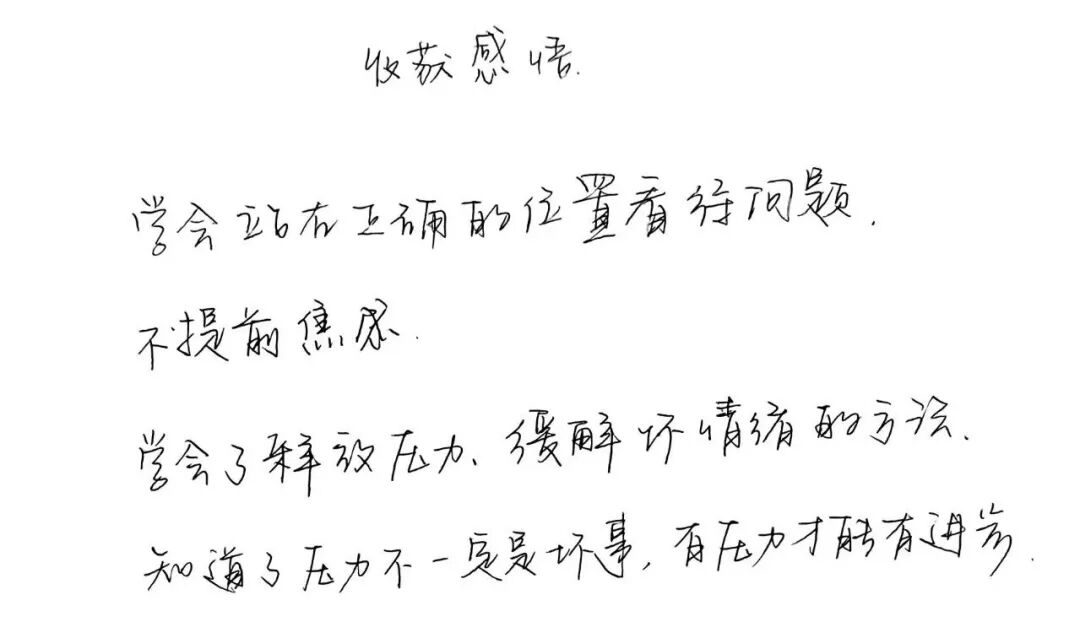 收获感悟.
学会站在正确的位置看待问题.
不提前焦虑.
学会了释放压力、缓解坏情绪的方法.
知道了压力不一定是坏事,有压力才能有进步.